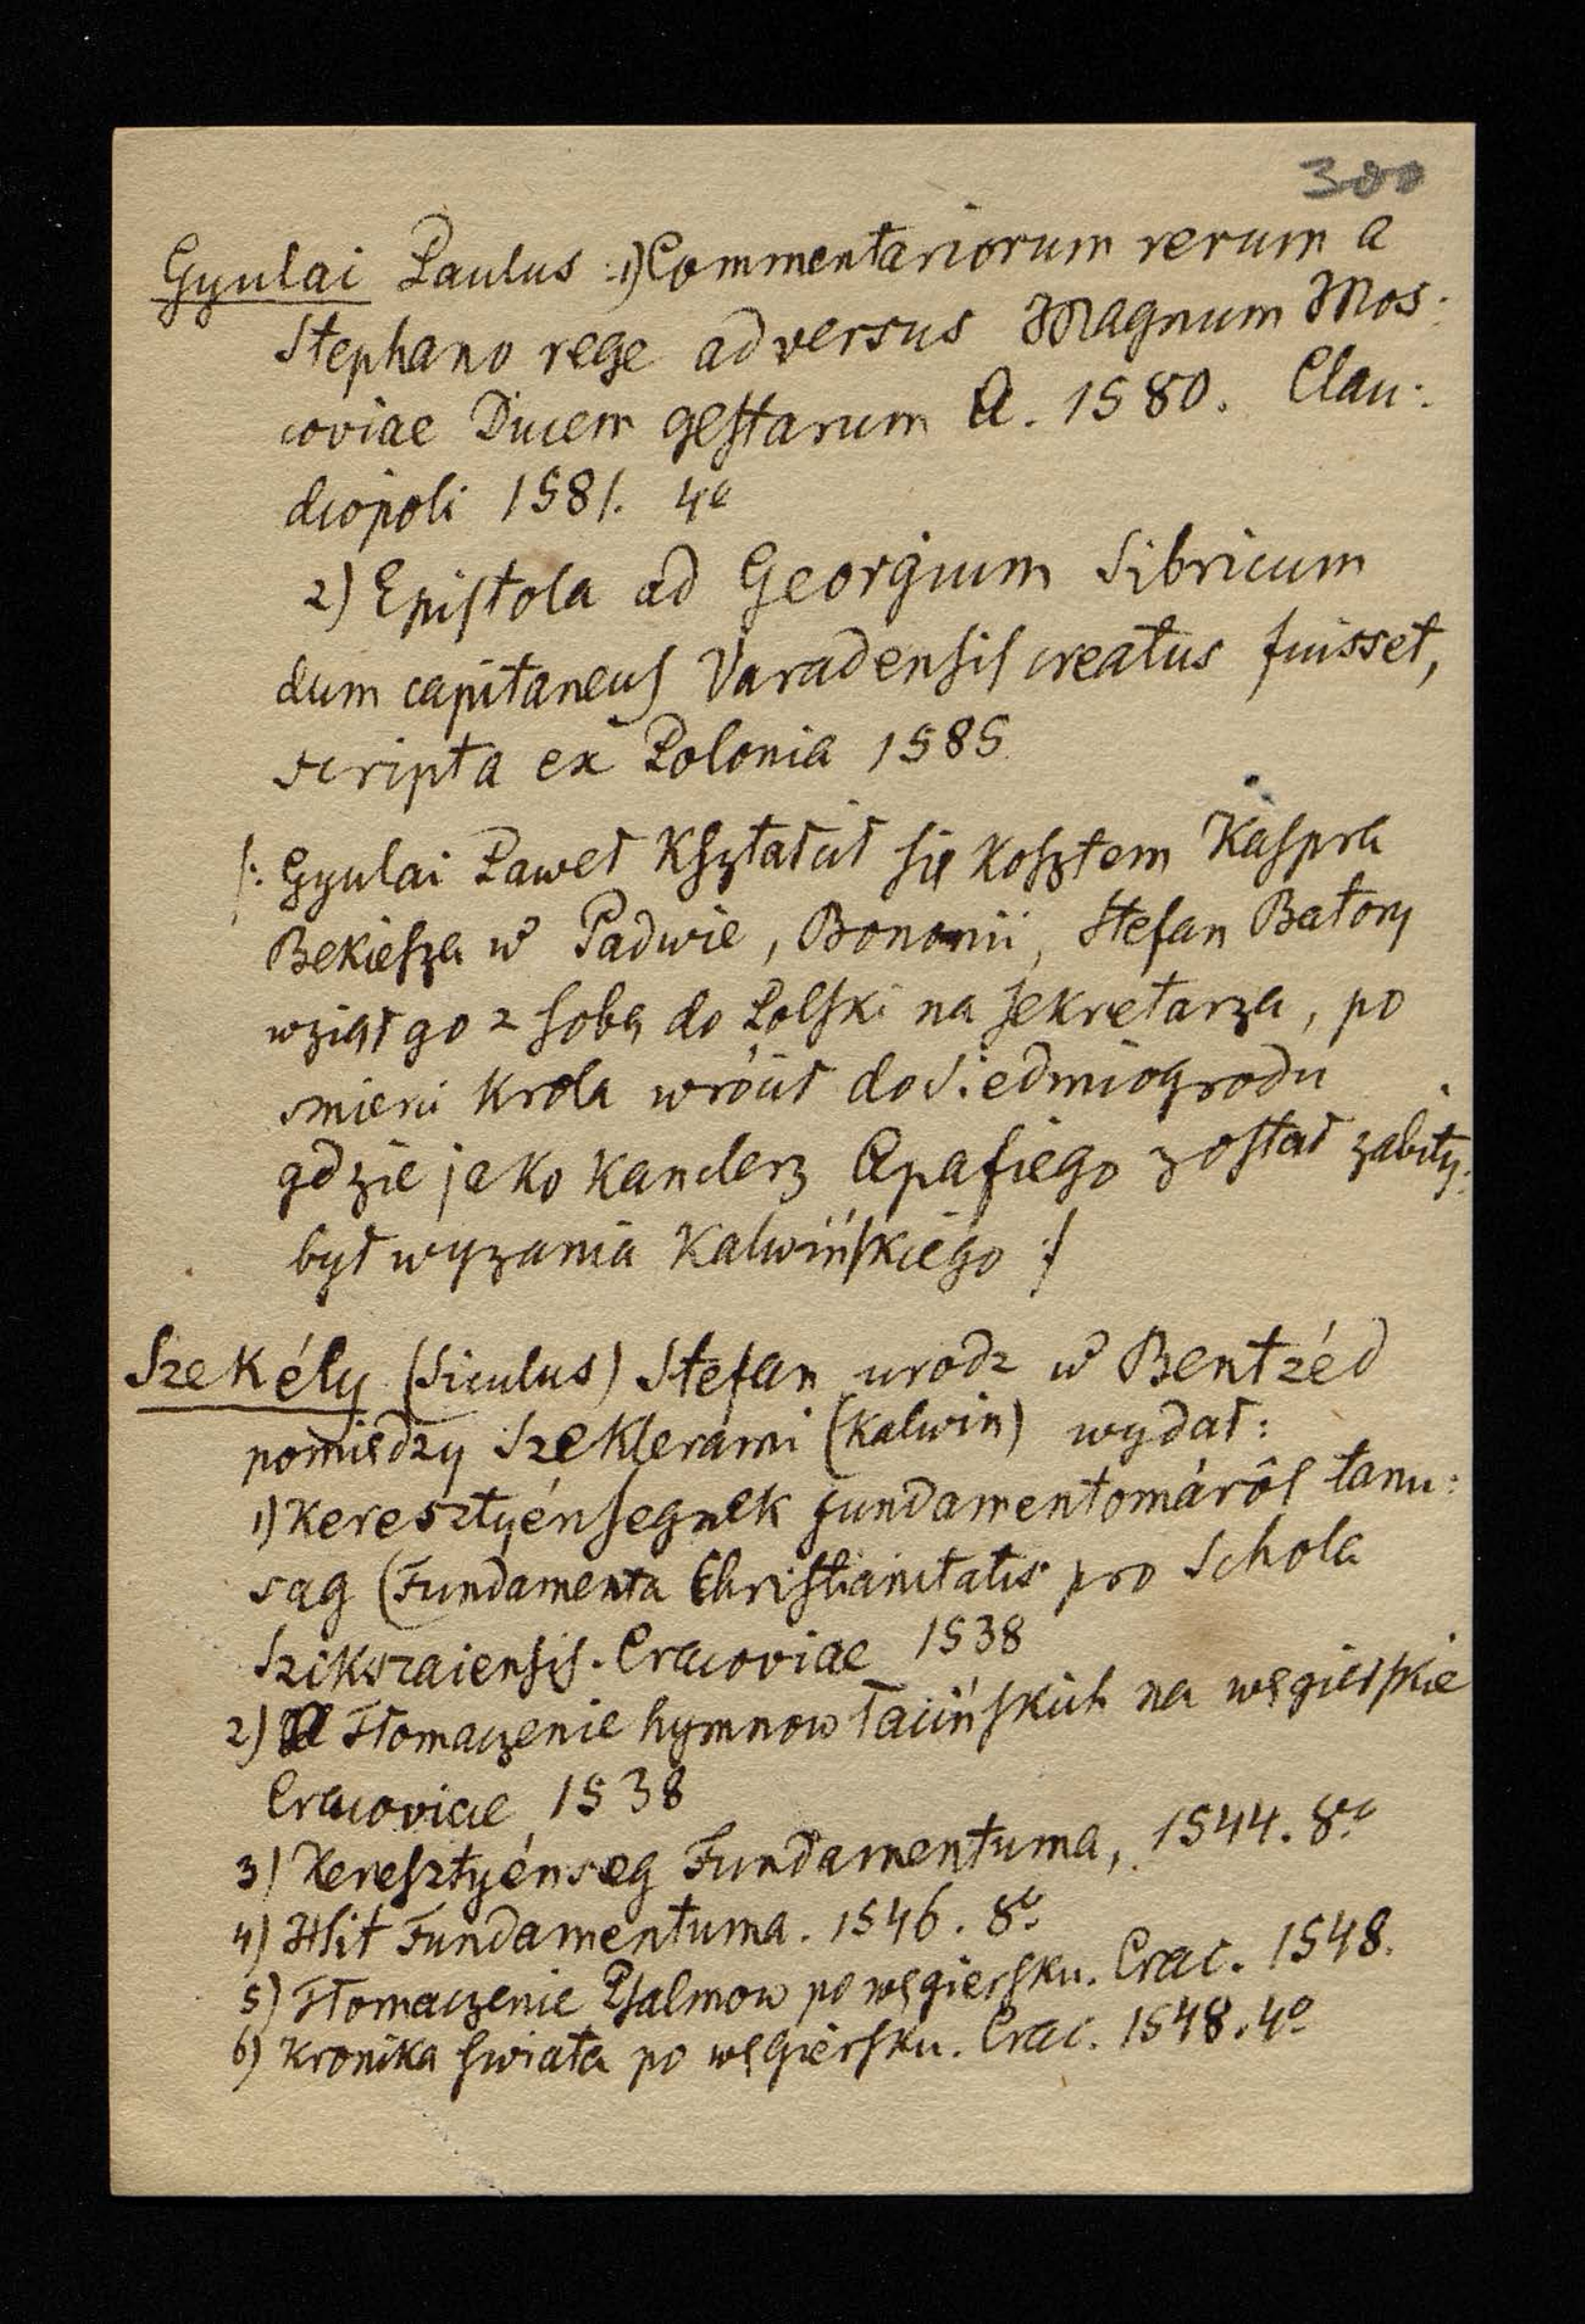 300
Gyulai Paulus :1) Commentariorum rerum a
Stephano rege adversus Magnum Mos:
coviae Ducem gestarum A. 1580. Clau:
diopoli 1581. 4o
2) Epistola ad Georgium Sibricum
dum capitaneus Varadensis creatus fuisset,
scripta ex Polonia 1585
/: Gyulai Paweł Kształcił się kosztem Kaspra
Bekiesza w Padwie, Bononii, Stefan Batory
wziął go z sobą do Polski na sekretarza, po
smierci Krola wrócił do Siedmiogrodu
gdzie jako Kanclerz Apafiego został zabity.
był wyzania Kalwińskiego :/
Székély (Siculus) Stefan urodz w Bentzéd
pomiędzy Szeklerami (Kalwin) wydał:
1) Keresztyénsegnek fundamentomáról tanu:
sag (Fundamenta Christianitatis pro Schola
Szikszaiensis. Cracoviae 1538
2) Tłomaczenie hymnow łacińskich na węgierskie
Cracoviae 1538
3) Keresztyénseg Fundamentuma, 1544. 8o
4) Hit Fundamentuma. 1546. 8o
5) Tłomaczenie Psalmow po węgiersku. Crac. 1548.
6) Kronika swiata po węgiersku. Crac. 1548. 4o